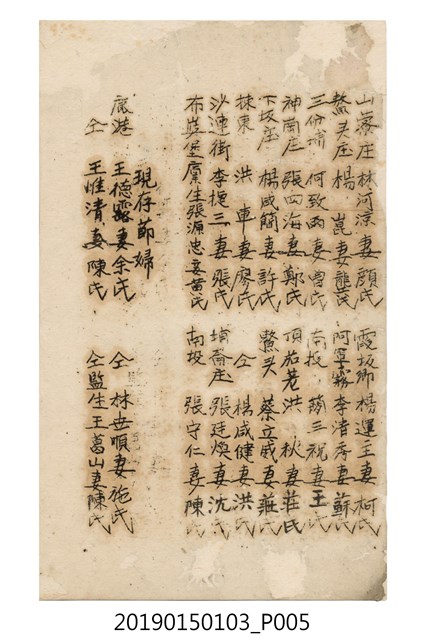 山寮庄林河涼妻顏氏 霞坂卿楊運王妻柯氏
鰲头庄楊崑妻龍氏 阿罩霧李渚房妻蘇氏
三份埔何致雨妻曾氏 南投簡三祝妻王氏
神南庄張四海妻鄭氏 頂茄荖洪秋妻莊氏
下坂庄楊咸簡妻許氏 鰲头蔡立威妻莊氏
揀東洪車妻廖氏 仝楊咸健妻洪氏
沙連街李捷三妻張氏 埔崙庄張廷煥妻沈氏
布嶼堡廩生張源忠妾黃氏 南投張守仁妻陳氏
現存節婦
鹿港王德露妻余氏 仝林世順妻施氏
仝王惟清妻陳氏 仝監生王葛山妻陳氏
20190150103_P005